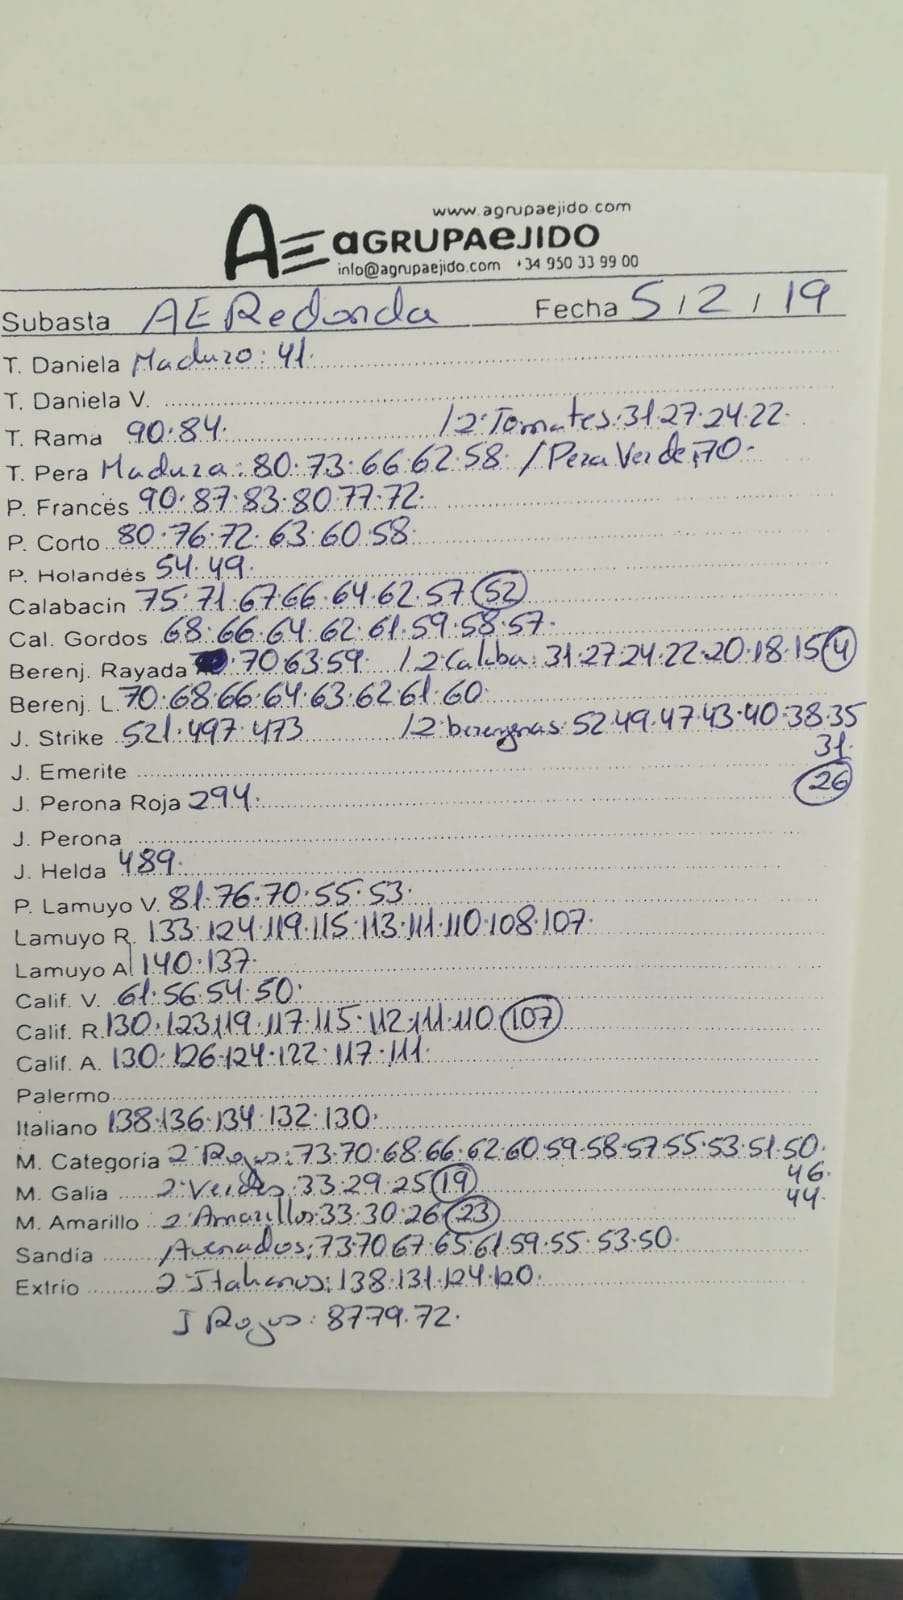 www.agrupaejido.com
AE aGRUPAeJIDO
info@agrupaejido.com +34 950 33 99 00
Subasta AE Redonda Fecha 5/2/19
T. Daniela Maduro: 41.
T. Daniela V.
T. Rama 90.84. /2ª Tomates: 31.27.24.22.
T. Pera Madura: 80.73.66.62.58. /Pera Verde: 70-
P. Francés 90.87.83.80.77.72.
P. Corto 80.76.72.63.60.58.
P. Holandés 54.49.
Calabacin 75.71.67.66.64.62.57.52
Cal. Gordos 68.66.64.62.61.59.58.57.
Berenj. Rayada 70.63.59. /2ª Calaba: 31.27.24.22.20.18.15.4
Berenj. L. 70.68.66.64.63.62.61.60.
J. Strike 521.497.473 /2ª berengenas: 52.49.47.43.40.38.35
31.
J. Emerite
26
J. Perona Roja 294.
J. Perona
J. Helda 489.
P. Lamuyo V. 81.76.70.55.53.
Lamuyo R. 133.124.119.115.113.111.110.108.107.
Lamuyo A 140.137.
Calif. V. 61.56.54.50.
Calif. R. 130.123.119.117.115.112.111.110.107
Calif. A. 130.126.124.122.117.111.
Palermo
Italiano 138.136.134.132.130.
M. Categoria 2ª Rojos: 73.70.68.66.62.60.59.58.57.55.53.51.50.
46.
M. Galia 2ª Verdes: 33.29.25.19
44.
M. Amarillo 2ª Amarillos: 33.30.26.23
Sandía Asurados: 73.70.67.65.61.59.55.53.50.
Extrio 2ª Italianos: 138.131.124.120.
J Rojos: 87.79.72.